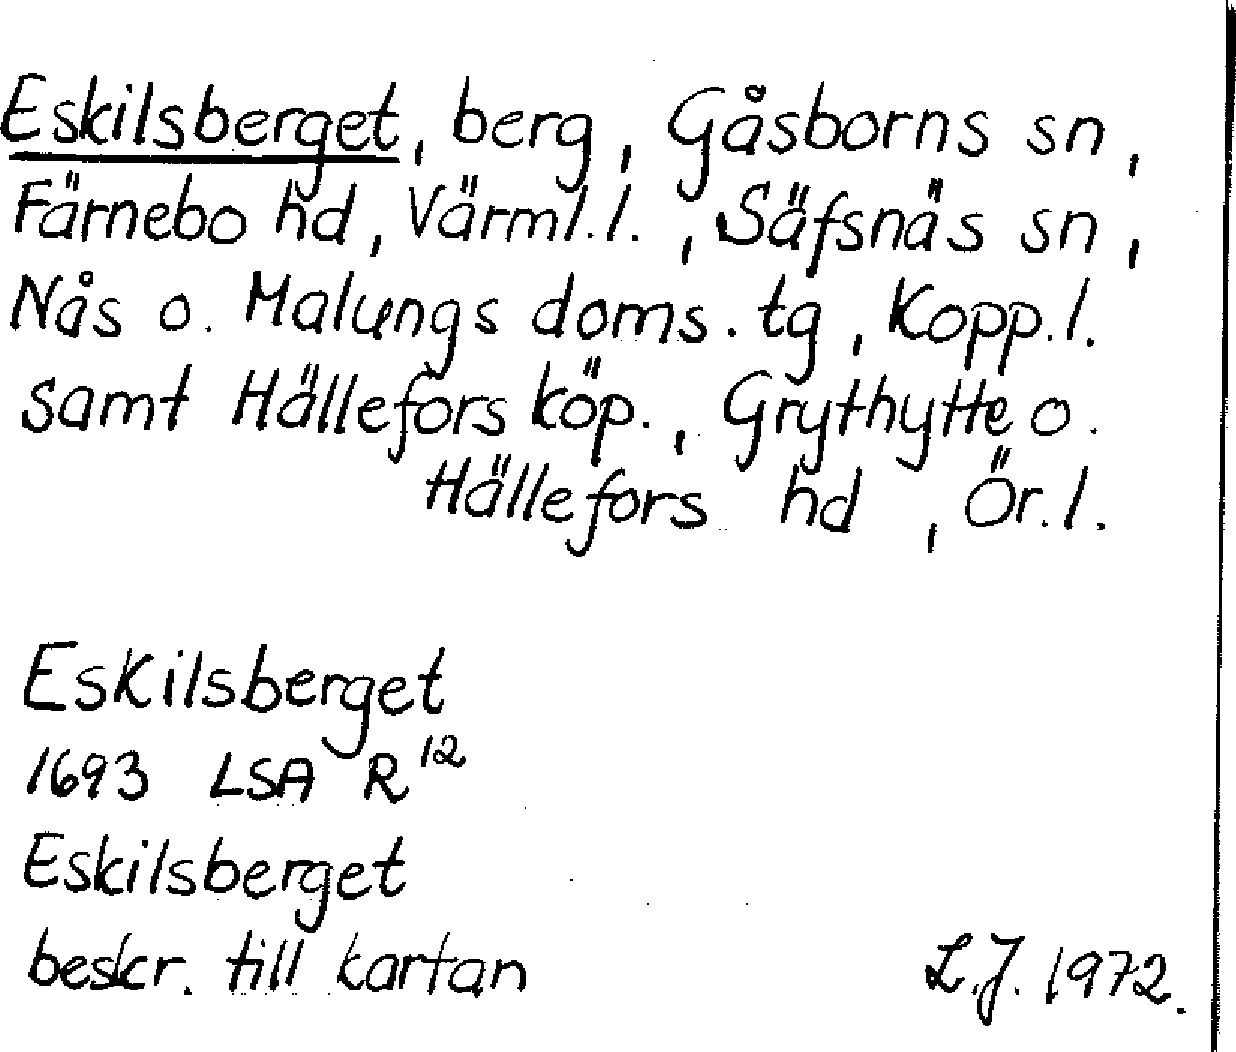 Eskilsberget, berg, Gåsborns sn,
Färnebo hd, Värml.l., Säfsnäs sn,
Nås o. Malungs doms.tg, Kopp.l.
samt Hällefors köp., Grythytte o.
Hällefors hd, Ör.l.
Eskilsberget
1693 LSA R¹²
Eskilsberget
beskr. till kartan
L.J. 1972.